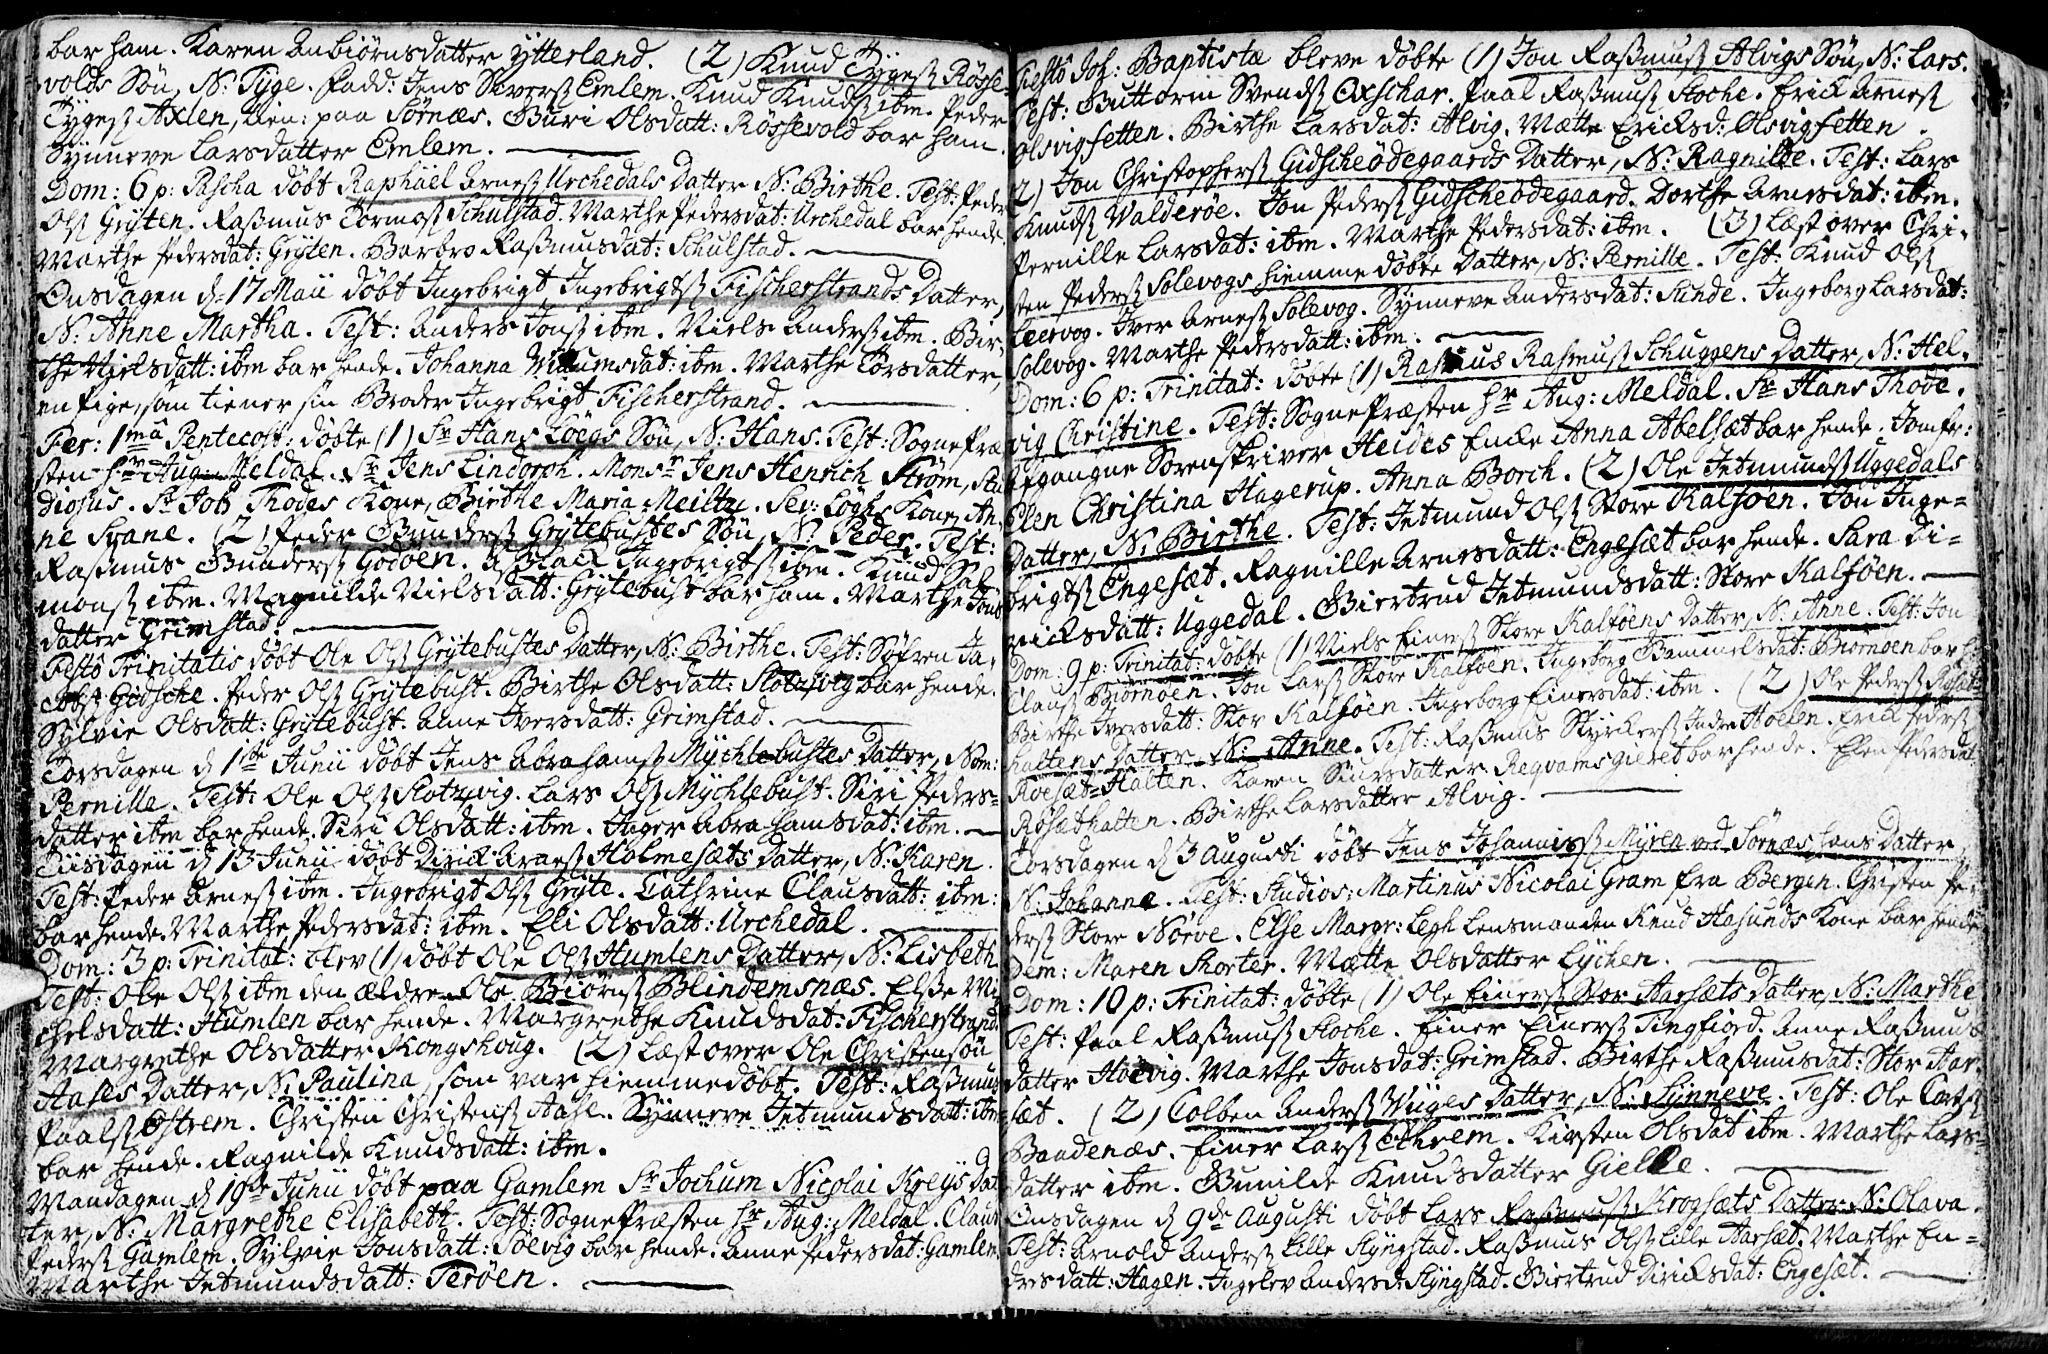 bar ham. Karen Anbiørnsdatter Ytterland. (2) Knud Tygesß Røsse-
volds Søn, N: Tyge. Fadd: Jens Siversß Emlem. Knud Knudsß ibm. Peder
Tygesß Axlen, tien: paa Sørnæs. Guri Olsdatt: Røssevold bar ham.
Synneve Larsdatter Emlem.
Dom: 6 p: Pascha døbt Raphäel Arnesß Urchedals Datter N: Birthe. Test: Peder
Olsß Gryten. Rasmus Tormosß Schulstad. Marthe Pedersdat: Urchedal bar hende.
Marthe Pedersdat: Gryten. Barbro Rasmusdat: Schulstad.
Onsdagen d. 17 Maii døbt Ingebrigt Ingebrigtsß Fischerstrands Datter,
N: Anne Martha. Test: Anders Jonsß ibm. Niels Andersß ibm. Bir-
the Nielsdatt: ibm bar hende. Johanna Willumsdat: ibm. Marthe Torsdatter,
en Pige, som tiener sin Broder Ingebrigt Fischerstrand.
Fer: 1mâ Pentecost: døbte (1) Sr Hans Löegs Søn, N: Hans. Test: Sognepræ-
sten Hr Aug: Meldal. Sr Jens Lindorph. Monsr Jens Henrich Strøm, Stu-
diosus. Sr Job Thodes Kone, Birthe Maria Meiltz. Sev: Löghs Kone, An-
ne Svane. (2) Peder Gundersß Grytebustes Søn, N: Peder. Test:
Rasmus Gundersß Godøen. Aslack Ingebrigtsß ibm. Knud Sal-
monsß ibm. Magnilde Nielsdatt: Grytebust bar ham. Marthe Jons
datter Grimstad.
Festô Trinitatis døbt Ole Olsß Grytebustes Datter, N: Birthe. Test: Søfren Ja-
cobsß Gidsche. Peder Olsß Grytebust. Birthe Olsdatt: Slotzvig bar hende.
Sylvie Olsdatt: Grytebust. Anne Iversdatt: Grimstad.
Torsdagen d 1ste Junii døbt Jens Abrahamsß Mychlebustes Datter, Nom:
Pernille. Test: Ole Olsß Slotzvig. Lars Olsß Mychlebust. Siri Peders-
datter ibm bar hende. Siri Olsdatt: ibm. Inger Abrahamsdat: ibm.
Tiisdagen d 13 Junii døbt Dirick Arnesß Holmesæts Datter, N: Karen.
Test: Peder Arnesß ibm. Ingebrigt Olsß Gryte. Cathrine Clausdatt: ibm:
bar hende. Marthe Pedersdat: ibm. Eli Olsdatt: Urchedal.
Dom: 3 p: Trinitat: blev (1) døbt Ole Olsß Humlens Datter, N: Lisbeth
Test: Ole Olsß ibm den ældre. Ole Biørnsß Blindemsnæs. Elsse Mi-
chelsdatt: Humlen bar hende. Margrethe Knudsdat: Fischerstrand.
Margrethe Olsdatter Kongshoug. (2) Læst over Ole Christensøn
Aases Datter, N: Paulina, som var hiemmedøbt. Test: Rasmus
Paalsß Østrem. Christen Christensß Aase. Synneve Jetmundsdatt: ibm
bar hende. Ragnilde Knudsdatt: ibm.
Mandagen d 19de Junii døbt paa Gamlem Sr Jochum Nicolai Kreys Dat-
ter, N: Margrethe Elisabeth. Test: Sognepræsten Hr Aug: Meldal. Claus
Pedersß Gamlem. Sylvie Jonsdatt: Søevig bar hende. Anne Pedersdat: Gamlem.
Marthe Jetmundsdatt: Terøen.
Festô Joh: Baptistæ bleve døbte (1) Jon Rasmusß Alvigs Søn, N: Lars.
Test: Guttorm Svendsß Oxschar. Paal Rasmusß Stoche. Erick Arnesß
Olsvigsetten. Birthe Larsdat: Alvig. Mætte Ericksd: Olsvigsetten.
2) Jon Christophersß Gidscheødegaards Datter, N: Ragnilde. Test: Lars
Knudsß Walderøe. Jon Pedersß Gidscheødegaard. Dorthe Arnesdat: ibm.
Pernille Larsdat: ibm. Marthe Pedersdat: ibm. (3) Læst over Chri-
sten Pedersß Solevogs hiemmedøbte Datter, N: Pernille. Test: Knud Olsß
Leervog. Iver Arnesß Solevog. Synneve Andersdat: Sunde. Ingeborg Larsdat:
Solevog. Marthe Pedersdatt: ibm.
Dom: 6 p: Trinitat: døbte (1) Rasmus Rasmusß Schuggens Datter, N: Hel-
vig Christine. Test: Sognepræsten Hr Aug: Meldal. Sr Hans Thode.
Afgangne Sorenskriver Heides Encke Anna Abelsæt bar hende. Jomfr:
Elen Christina Hagerup. Anna Borch. (2) Ole Jetmundsß Uggedals
Datter, N: Birthe. Test: Jetmund Olsß Store Kalsøen. Jon Inge-
brigtsß Engesæt. Ragnille Arnesdatt: Engesæt bar hende. Sara Di-
ricksdatt: Uggedal. Giertrud Jetmundsdatt: Store Kalsøen.
Dom: 9 p: Trinitat: døbte (1) Niels Einersß Store Kalsøens Datter, N: Anne. Test: Jon
Clausß Biørnøen. Jon Larsß Store Kalsøen. Ingeborg Gammelsdat: Biørnøen bar h:
Birthe Iversdatt: Stor Kalsøen. Ingeborg Einersdat: ibm. (2) Ole Pedersß Røsæt-
haltens Datter N: Anne. Test: Rasmus Styrckersß Indre Hoelen. Erick Pedersß
Roesæt-Halten. Karen Siursdatter Reqvamsgieret bar hende. Elen Pedersdat:
Røsæthalten. Birthe Larsdatter Alvig.
Torsdagen d 3 Augusti døbt Jens Johannisß Myren ved Sørnæs, hans Datter,
N: Johanne. Test: Studios: Martinus Nicolai Gram fra Bergen. Christen Pe-
dersß Store Nørve. Else Margr: Legh Lensmanden Knud Hasunds Kone bar hende
Dem: Maren Skorter. Mætte Olsdatter Lychen.
Dom: 10 p: Trinitat: døbte (1) Ole Einersß Stor Aarsæts Datter, N: Marthe
Test: Paal Rasmusß Stoche. Einer Einersß Tingfiord. Anne Rasmus-
datter Høevig. Marthe Jonsdat: Grimstad. Birthe Rasmusdat: Stor Aar-
sæt. (2) Colben Andersß Wiiges Datter, N: Synneve. Test: Ole Corts
Baadenæs. Einer Larsß Ethrem. Kirsten Olsdat ibm. Marthe Lars-
datter ibm. Gunilde Knudsdatter Gielle.
Onsdagen d 9de Augusti døbt Lars Rasmusß Krogsæts Datter N: Olava.
Test: Arnold Andersß Lille Slyngstad. Rasmus Olsß Lille Aarsæt. Marthe En-
dresdatt: Hagen. Ingelev Andersd: Slyngstad. Giertrud Diricksdat: Engesæt.